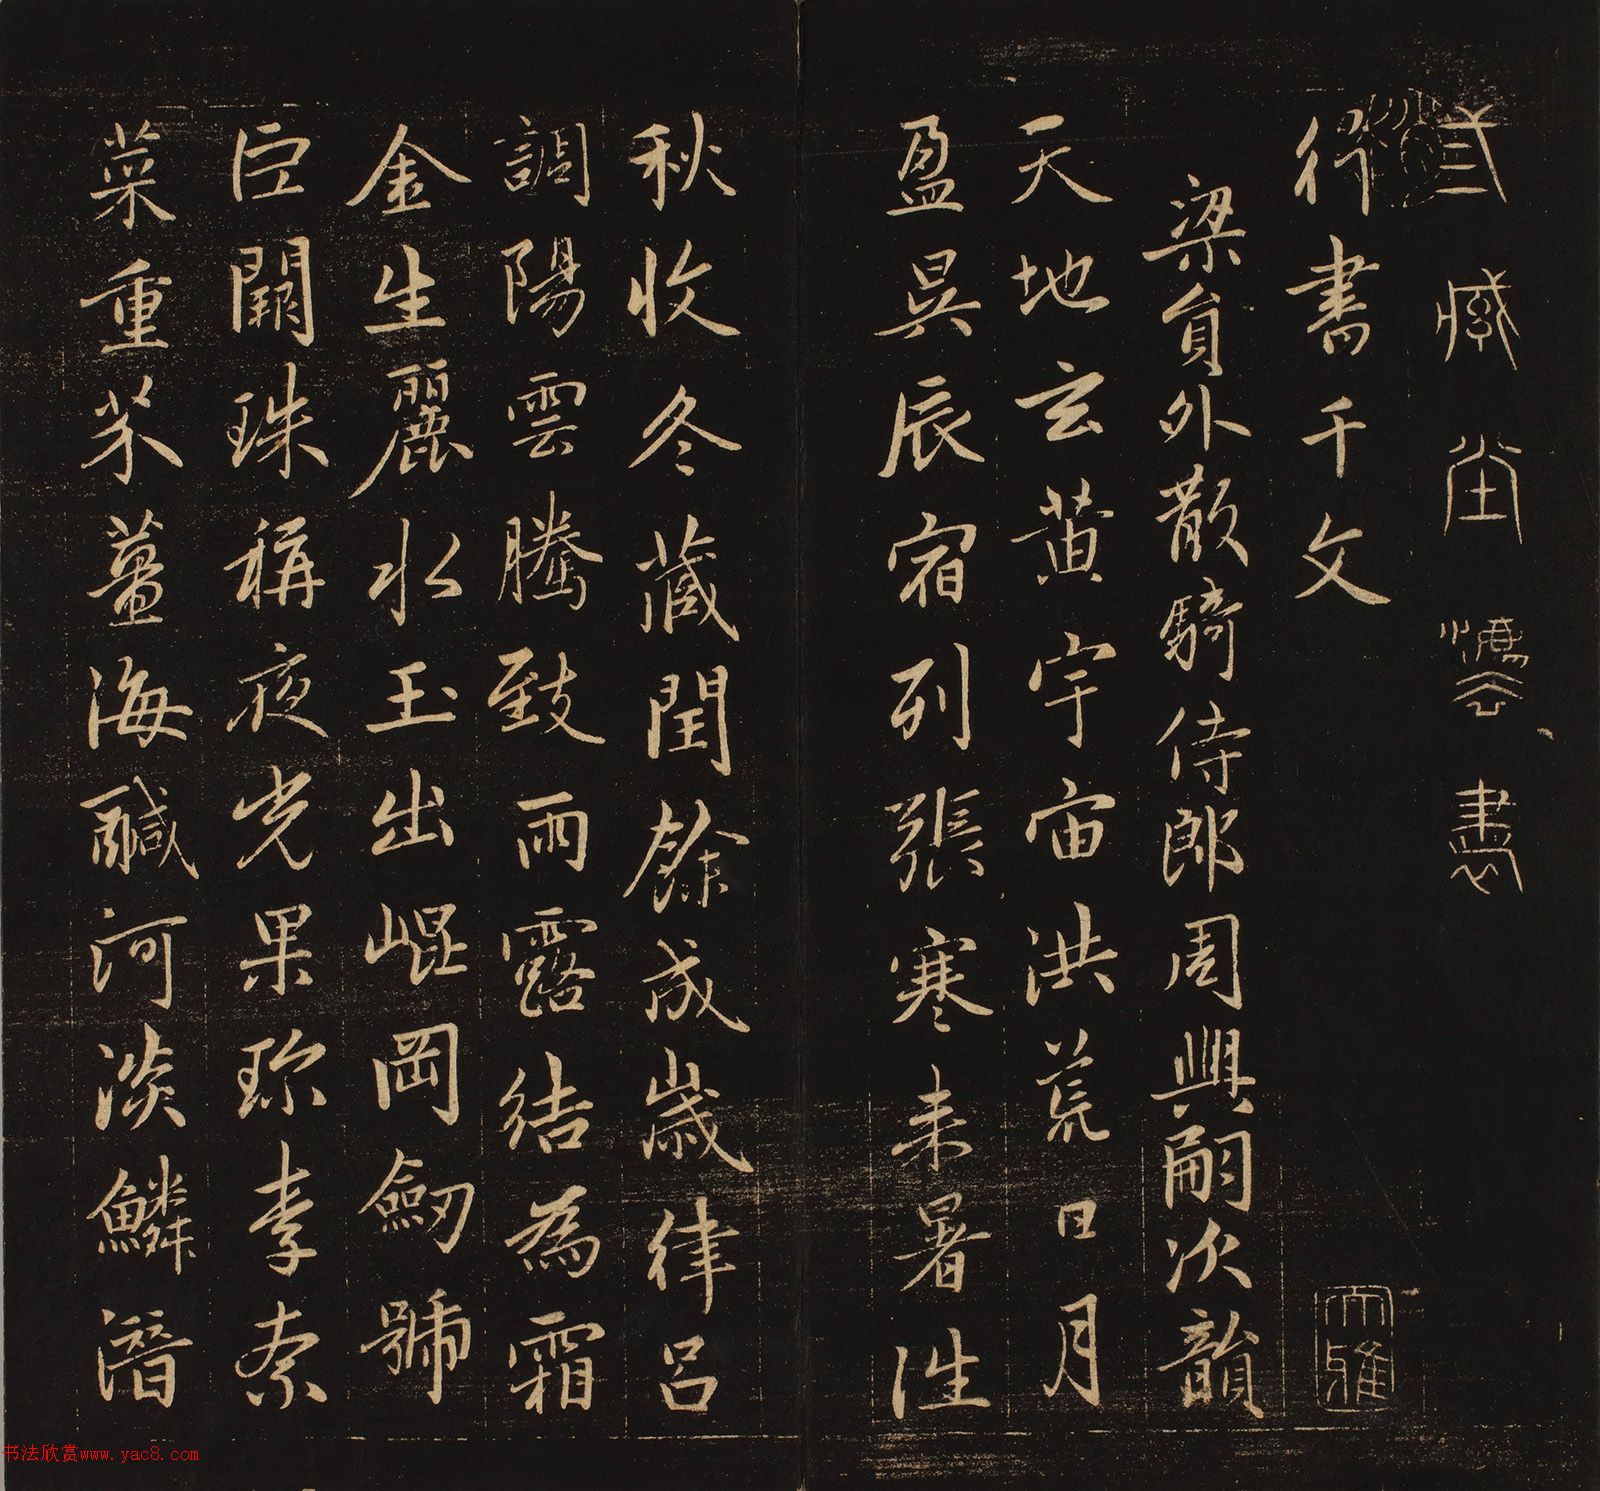 行書千文
梁員外散騎侍郎周興嗣次韻
天地玄黃宇宙洪荒日月
盈昃辰宿列張寒来暑往
秋收冬藏閏餘成歲律呂
調陽雲騰致雨露結為霜
金生麗水玉出崐岡劒號
巨闕珠稱夜光果珍李柰
菜重芥薑海鹹河淡鱗潛
大雅
书法欣赏www.yac8.com